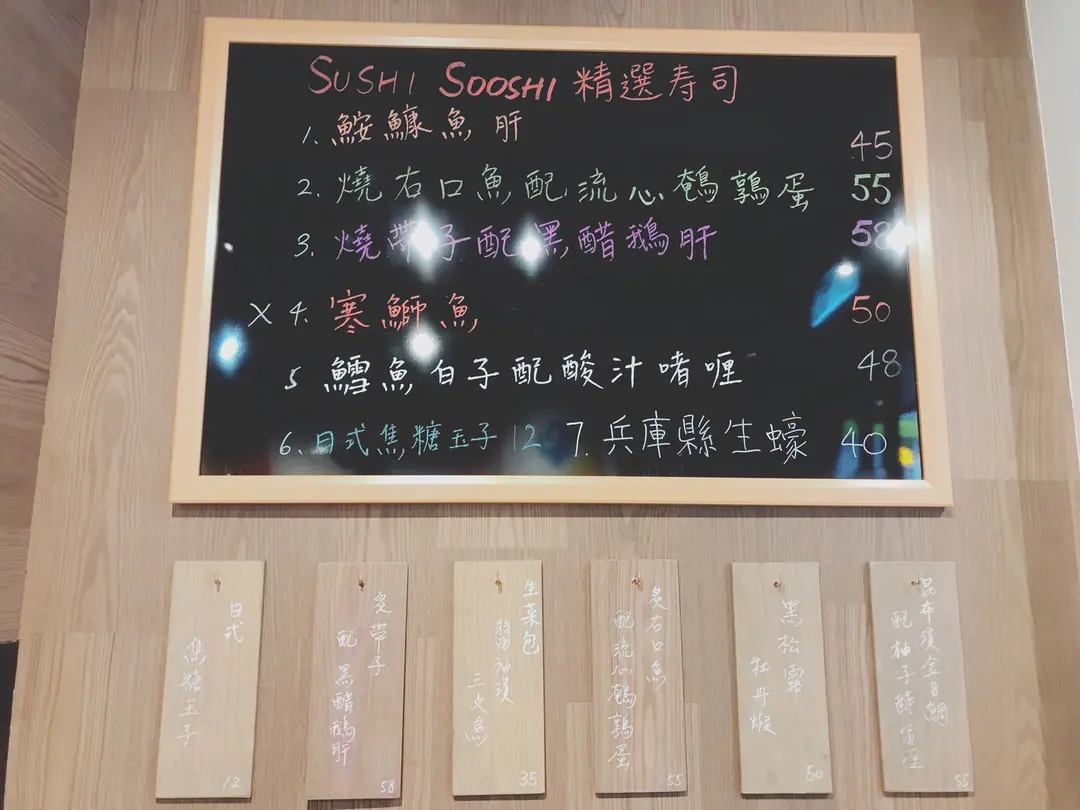 SUSHI SOOSHI 精選寿司
1. 鮟鱇魚肝 45
2. 燒右口魚配流心鵪鶉蛋 55
3. 燒帶子配黑醋鵝肝 58
X 4. 寒鰤魚 50
5 鱈魚白子配酸汁啫喱 48
6. 日式焦糖玉子 12 7. 兵庫縣生蠔 40
日式
焦糖玉子
12
炙帶子
配黑醋鵝肝
58
生菜包
醬油漬
三文魚
35
炙右口魚
配流心鵪鶉蛋
55
黑松露
牡丹蝦
50
昆布漬金目鯛
配柚子酢啫喱
55